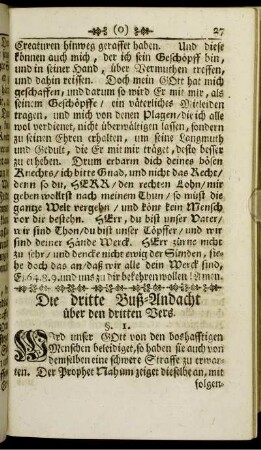 (0) 27
Creaturen hinweg geraffet haben. Und diese
können auch mich, der ich sein Geschöpff bin,
und in seiner Hand, über Vermuthen treffen,
und dahin reissen. Doch mein GOtt hat mich
geschaffen, und darum so wird Er mit mir, als
seinem Geschöpffe/ ein väterliches Mitleiden
tragen, und mich von denen Plagen/die ich alle
wol verdienet, nicht überwältigen lassen, sondern
zu seinen Ehren erhalten, um seine Langmuth
und Gedult, die Er mit mir träget, desto besser
zu erheben. Drum erbarm dich deines bösen
Knechts/ ich bitte Gnad, und nicht das Recht/
denn so du, HERR/ den rechten Lohn/ mir
geben woltest nach meinem Thun/ so müst die
gantze Welt vergehn/ und könt kein Mensch
vor dir bestehn. HErr, du bist unser Vater/
wir sind Thon/du bist unser Töpffer/ und wir
sind deiner Hände Werck. HErr zürne nicht
zu sehr/ und dencke nicht ewig der Sünden, sie-
he doch das an/daß wir alle dein Werck sind,
Es. 64. 8. 9. und uns zu dir bekehren wollen! Amen.
Die dritte Buß-Andacht
über den dritten Vers.
§. 1.
WIrd unser GOtt von den boshafftigen
Menschen beleidiget, so haben sie auch von
demselben eine schwere Straffe zu erwar-
ten. Der Prophet Nahum zeiget dieselbe an, mit
folgen-